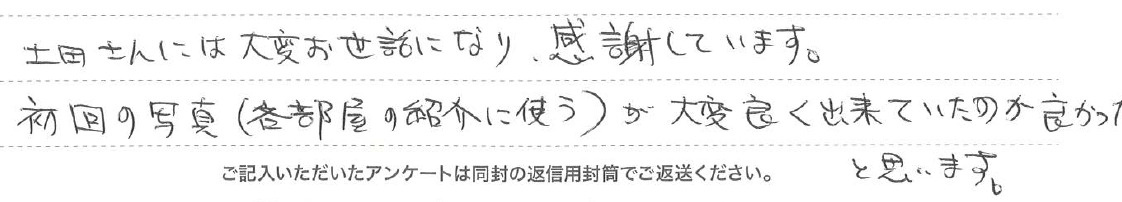 土田さんには大変お世話になり、感謝しています。
初回の写真(各部屋の紹介に使う)が大変良く出来ていたのが良かった
と思います。
ご記入いただいたアンケートは同封の返信用封筒でご返送ください。